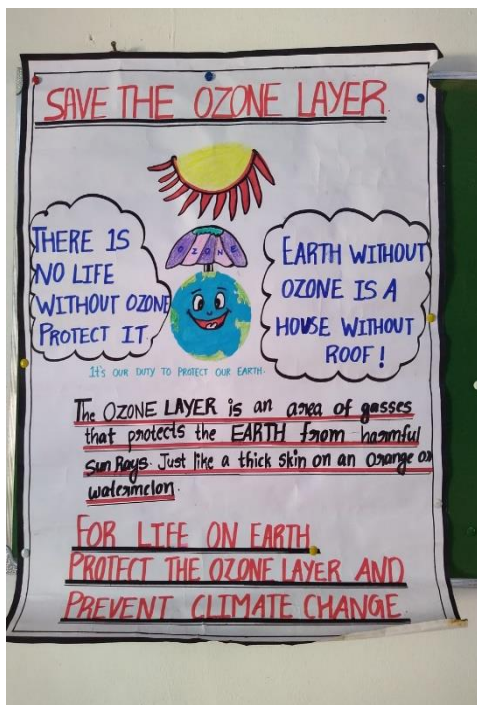 SAVE THE OZONE LAYER
OZONE
THERE IS
NO LIFE
WITHOUT OZONE
PROTECT IT
EARTH WITHOUT
OZONE IS A
HOUSE WITHOUT
ROOF!
It's OUR DUTY TO PROTECT OUR EARTH.
The OZONE LAYER is an area of gasses
that protects the EARTH from harmful
sun Rays. Just like a thick skin on an orange or
watermelon.
FOR LIFE ON EARTH
PROTECT THE OZONE LAYER AND
PREVENT CLIMATE CHANGE